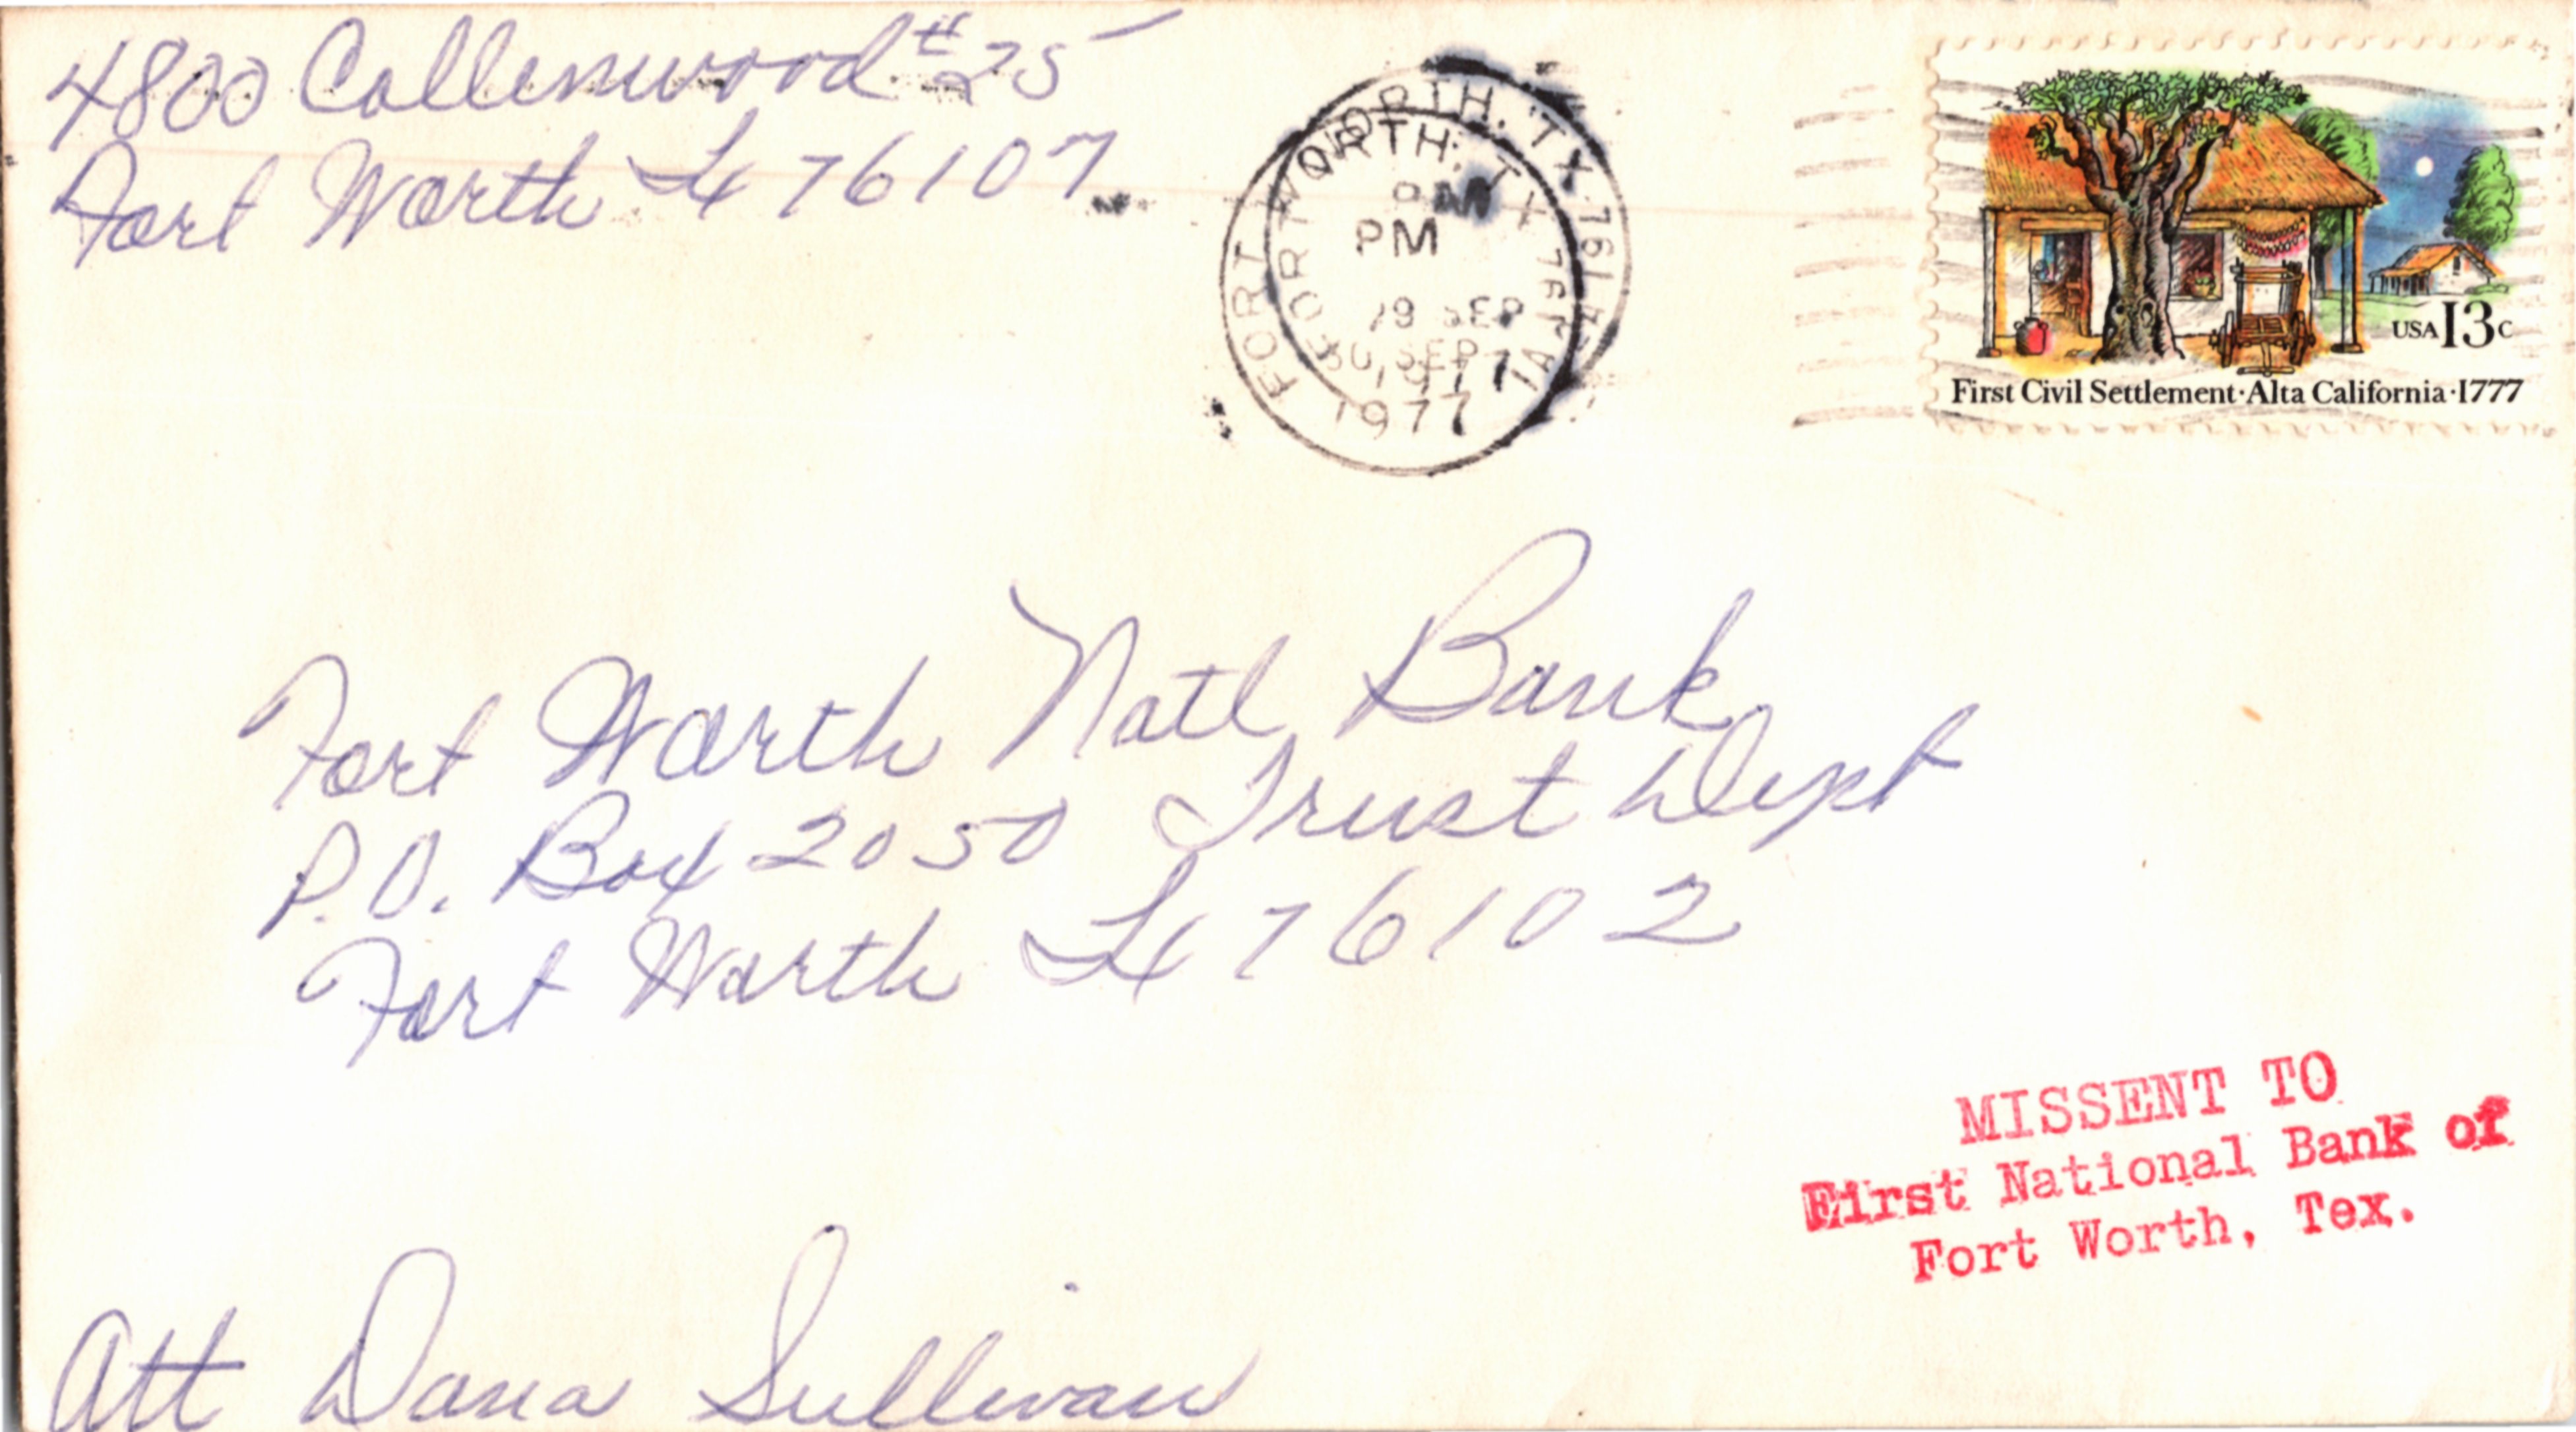 4800 Collinwood #25
Fort Worth Tx 76107
FORT WORTH, TX 761
FORT WORTH, TX 761
PM
PM
19 SEP
1977
SEP
1977
USA 13c
First Civil Settlement·Alta California·1777
Fort Worth Natl Bank
P.O. Box 2050 Trust Dept
Fort Worth Tx 76102
MISSENT TO
First National Bank of
Fort Worth, Tex.
Att Dana Sullivan